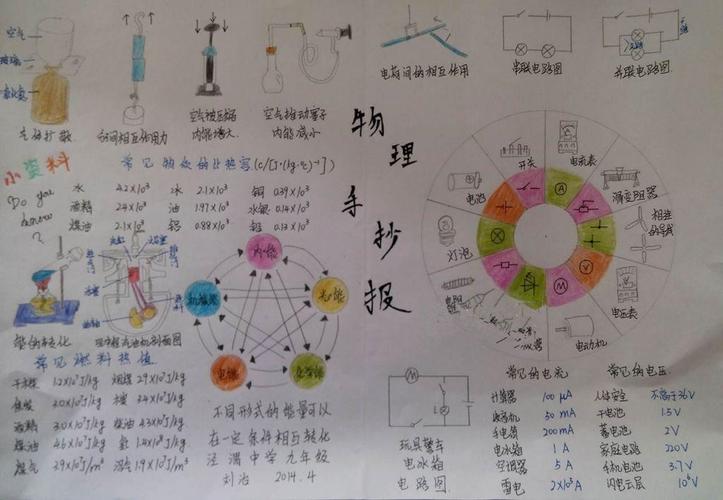 空气
玻璃
气体扩散
分子间相互作用力
空气被压缩
内能增大
空气推动塞子
内能减小
电荷间的相互作用
串联电路图
并联电路图
物理手抄报
小资料
常见物质的比热容(c/[J·(kg·℃)⁻¹])
Do you know?
水 4.2×10³ 冰 2.1×10³ 铜 0.39×10³
酒精 2.4×10³ 油 1.97×10³ 水银 0.14×10³
煤油 2.1×10³ 铝 0.88×10³ 铅 0.13×10³
能的转化
内能
机械能
光能
电能
化学能
不同形式的能量可以
在一定条件相互转化
泾渭中学九年级
刘冶 2014.4
常见燃料热值
干木柴 1.2×10⁷J/kg 烟煤 2.9×10⁷J/kg
焦炭 3.0×10⁷J/kg 木炭 3.4×10⁷J/kg
酒精 3.0×10⁷J/kg 柴油 4.3×10⁷J/kg
煤油 4.6×10⁷J/kg 氢 1.4×10⁸J/kg
煤气 3.9×10⁷J/m³ 沼气 1.9×10⁷J/m³
开关
电流表
滑变阻器
相连的导线
电压表
电动机
灯泡
电池
A
V
M
M
玩具警车
电冰箱
电路图
常见的电流
计算器 100 μA
收音机 50 mA
手电筒 200mA
电冰箱 1 A
空调器 5 A
雷电 2×10⁵A
常见的电压
人体安全 不高于36V
干电池 1.5V
蓄电池 2V
家庭电路 220V
手机电池 3.7V
闪电云层 10⁶V